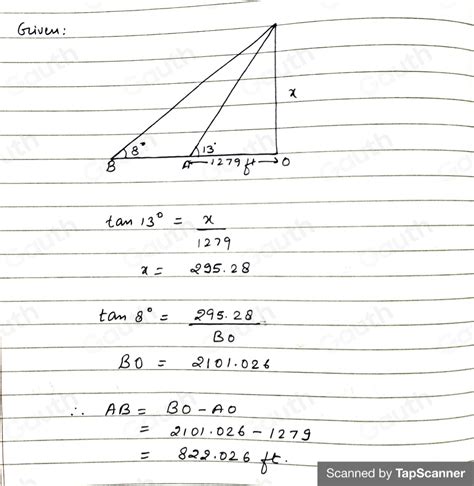 Given:
x
8°
13°
B
A
1279 ft
O
tan 13° = x
1279
x = 295.28
tan 8° = 295.28
BO
BO = 2101.026
∴ AB = BO - AO
= 2101.026 - 1279
= 822.026 ft.
Gauth
Scanned by TapScanner